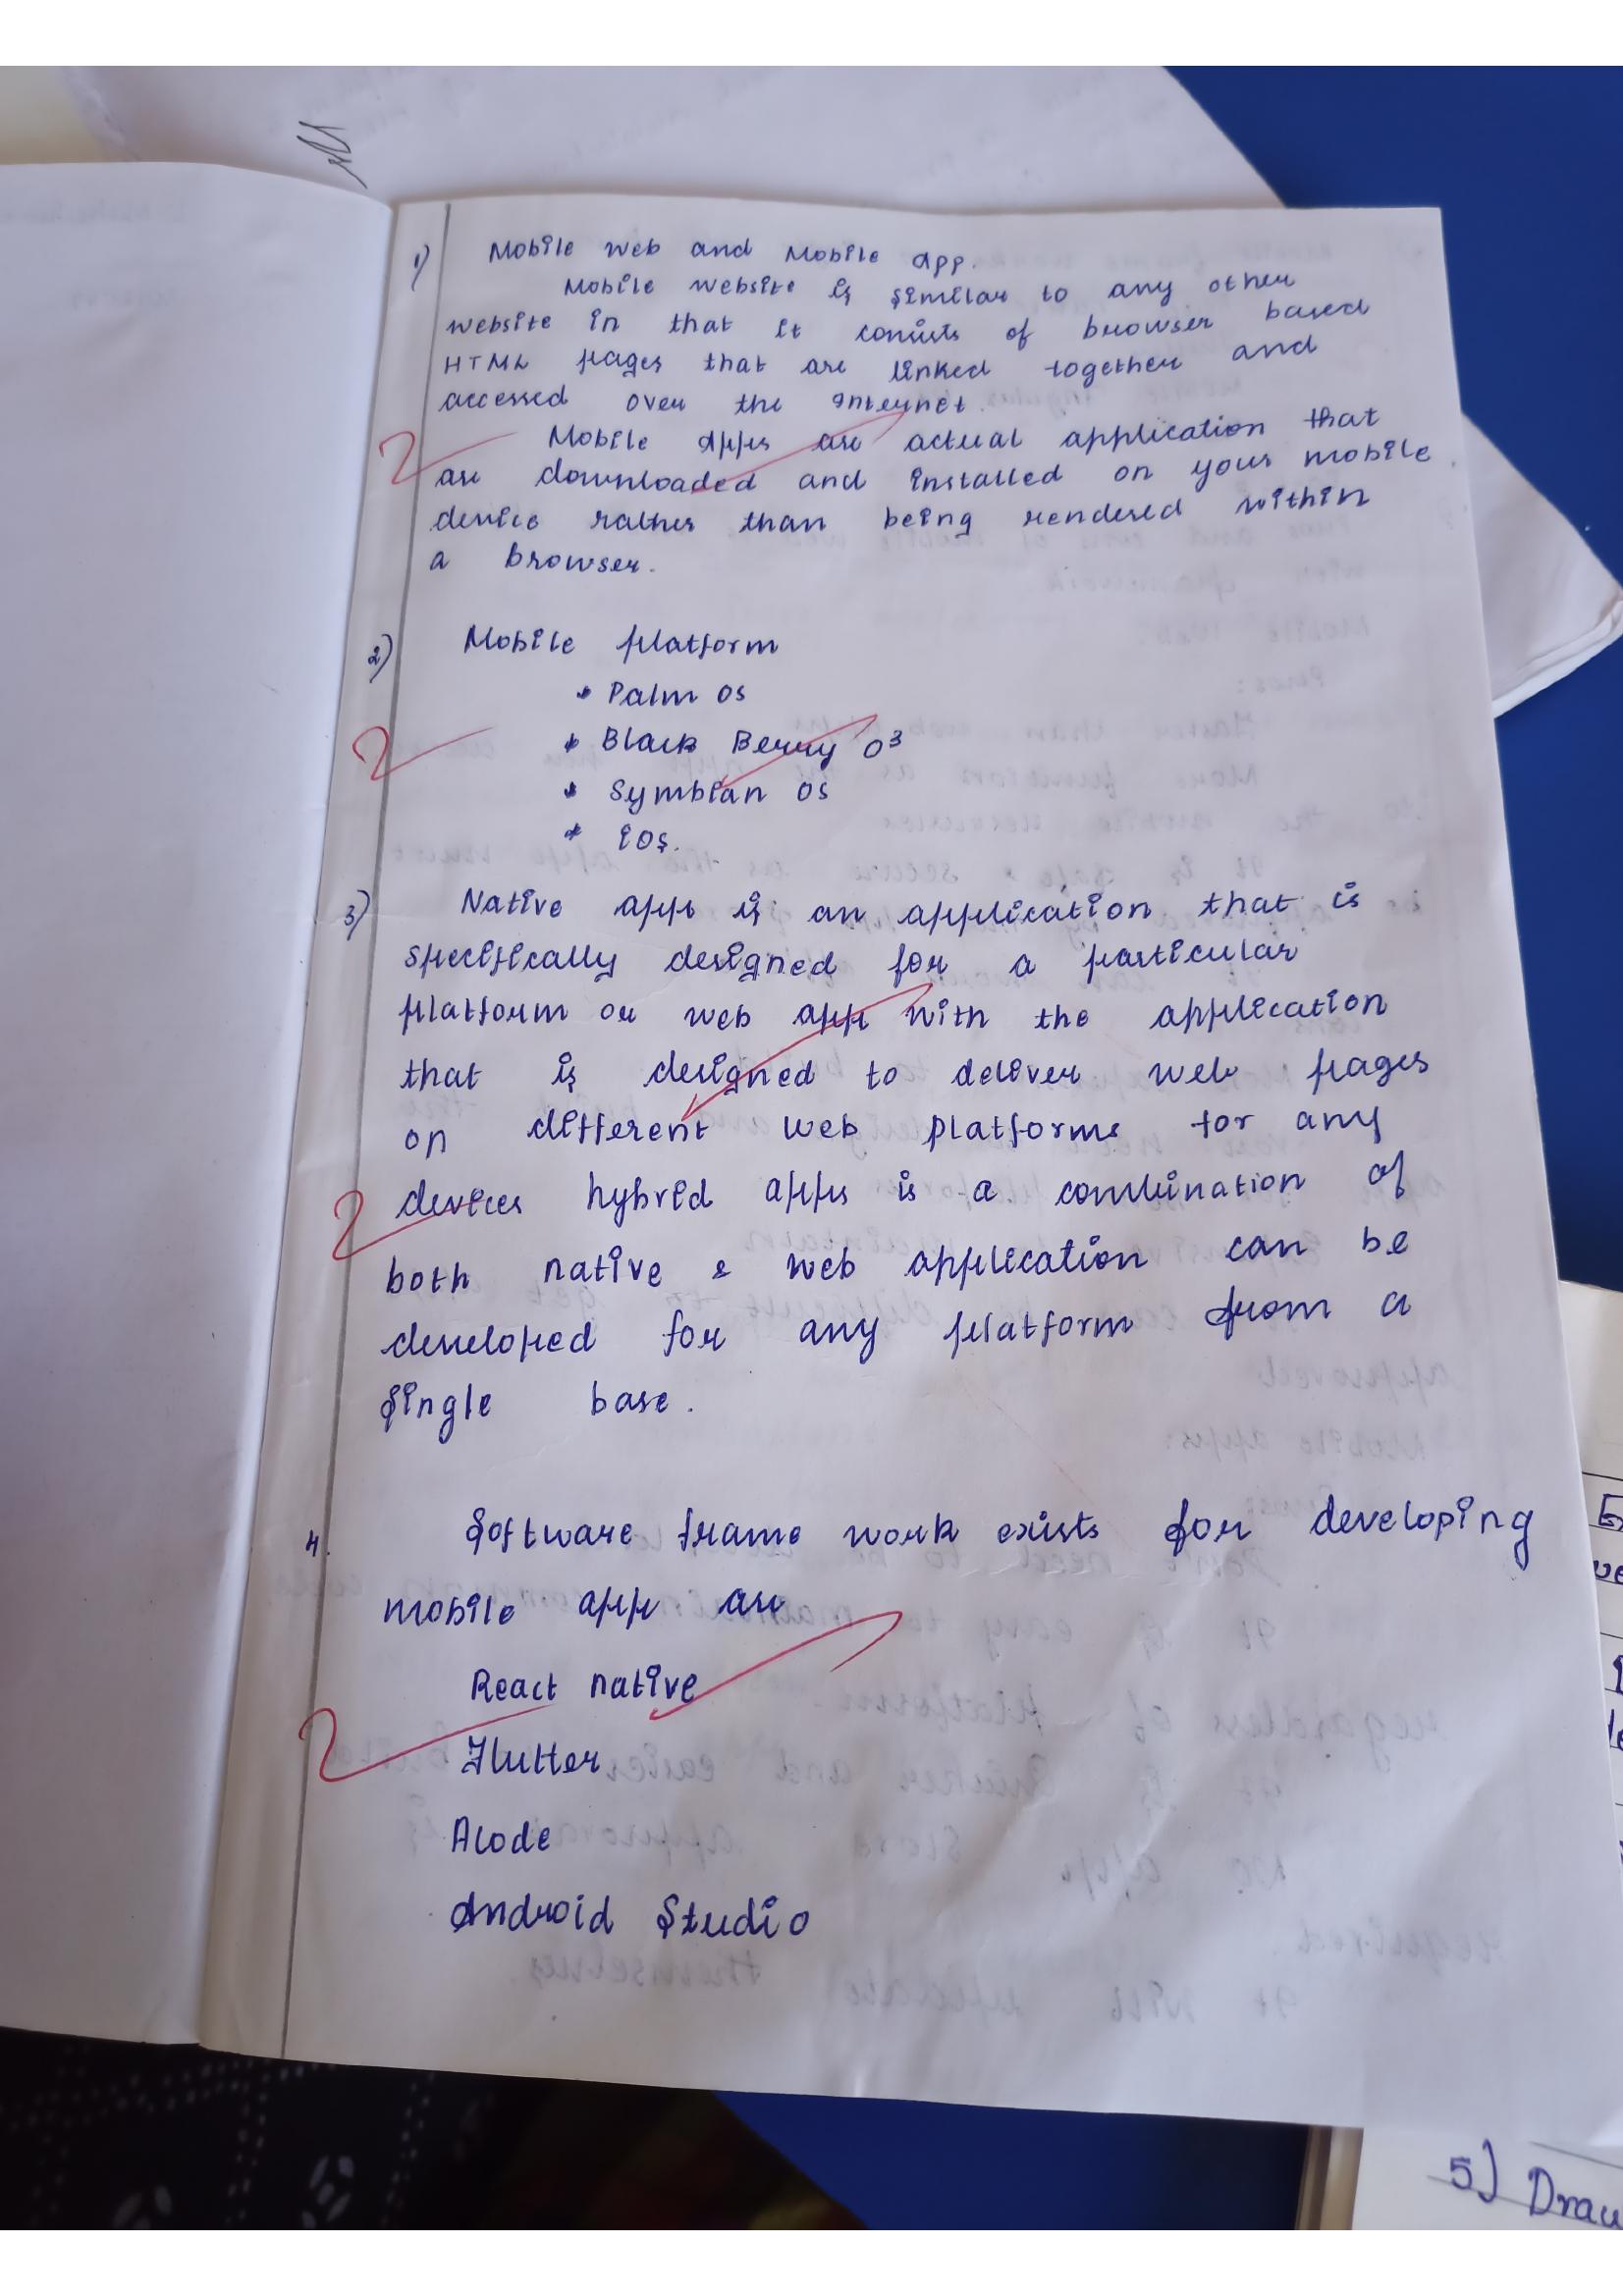 1) Mobile web and Mobile app.
Mobile website is similar to any other
website in that it consists of browser based
HTML pages that are linked together and
accessed over the Internet.
2 Mobile apps are actual application that
are downloaded and installed on your mobile
device rather than being rendered within
a browser.
2) Mobile platform
* Palm os
2 * Black Berry O3
* Symbian OS
* ios.
3) Native app is an application that is
specifically designed for a particular
platform or web app with the application
that is designed to deliver web pages
on different web platforms for any
2 devices hybrid apps is a combination of
both native & web application can be
developed for any platform from a
single base.
4. Software frame work exists for developing
mobile app are
React native
2 Flutter
Acode
Android Studio
5) Draw